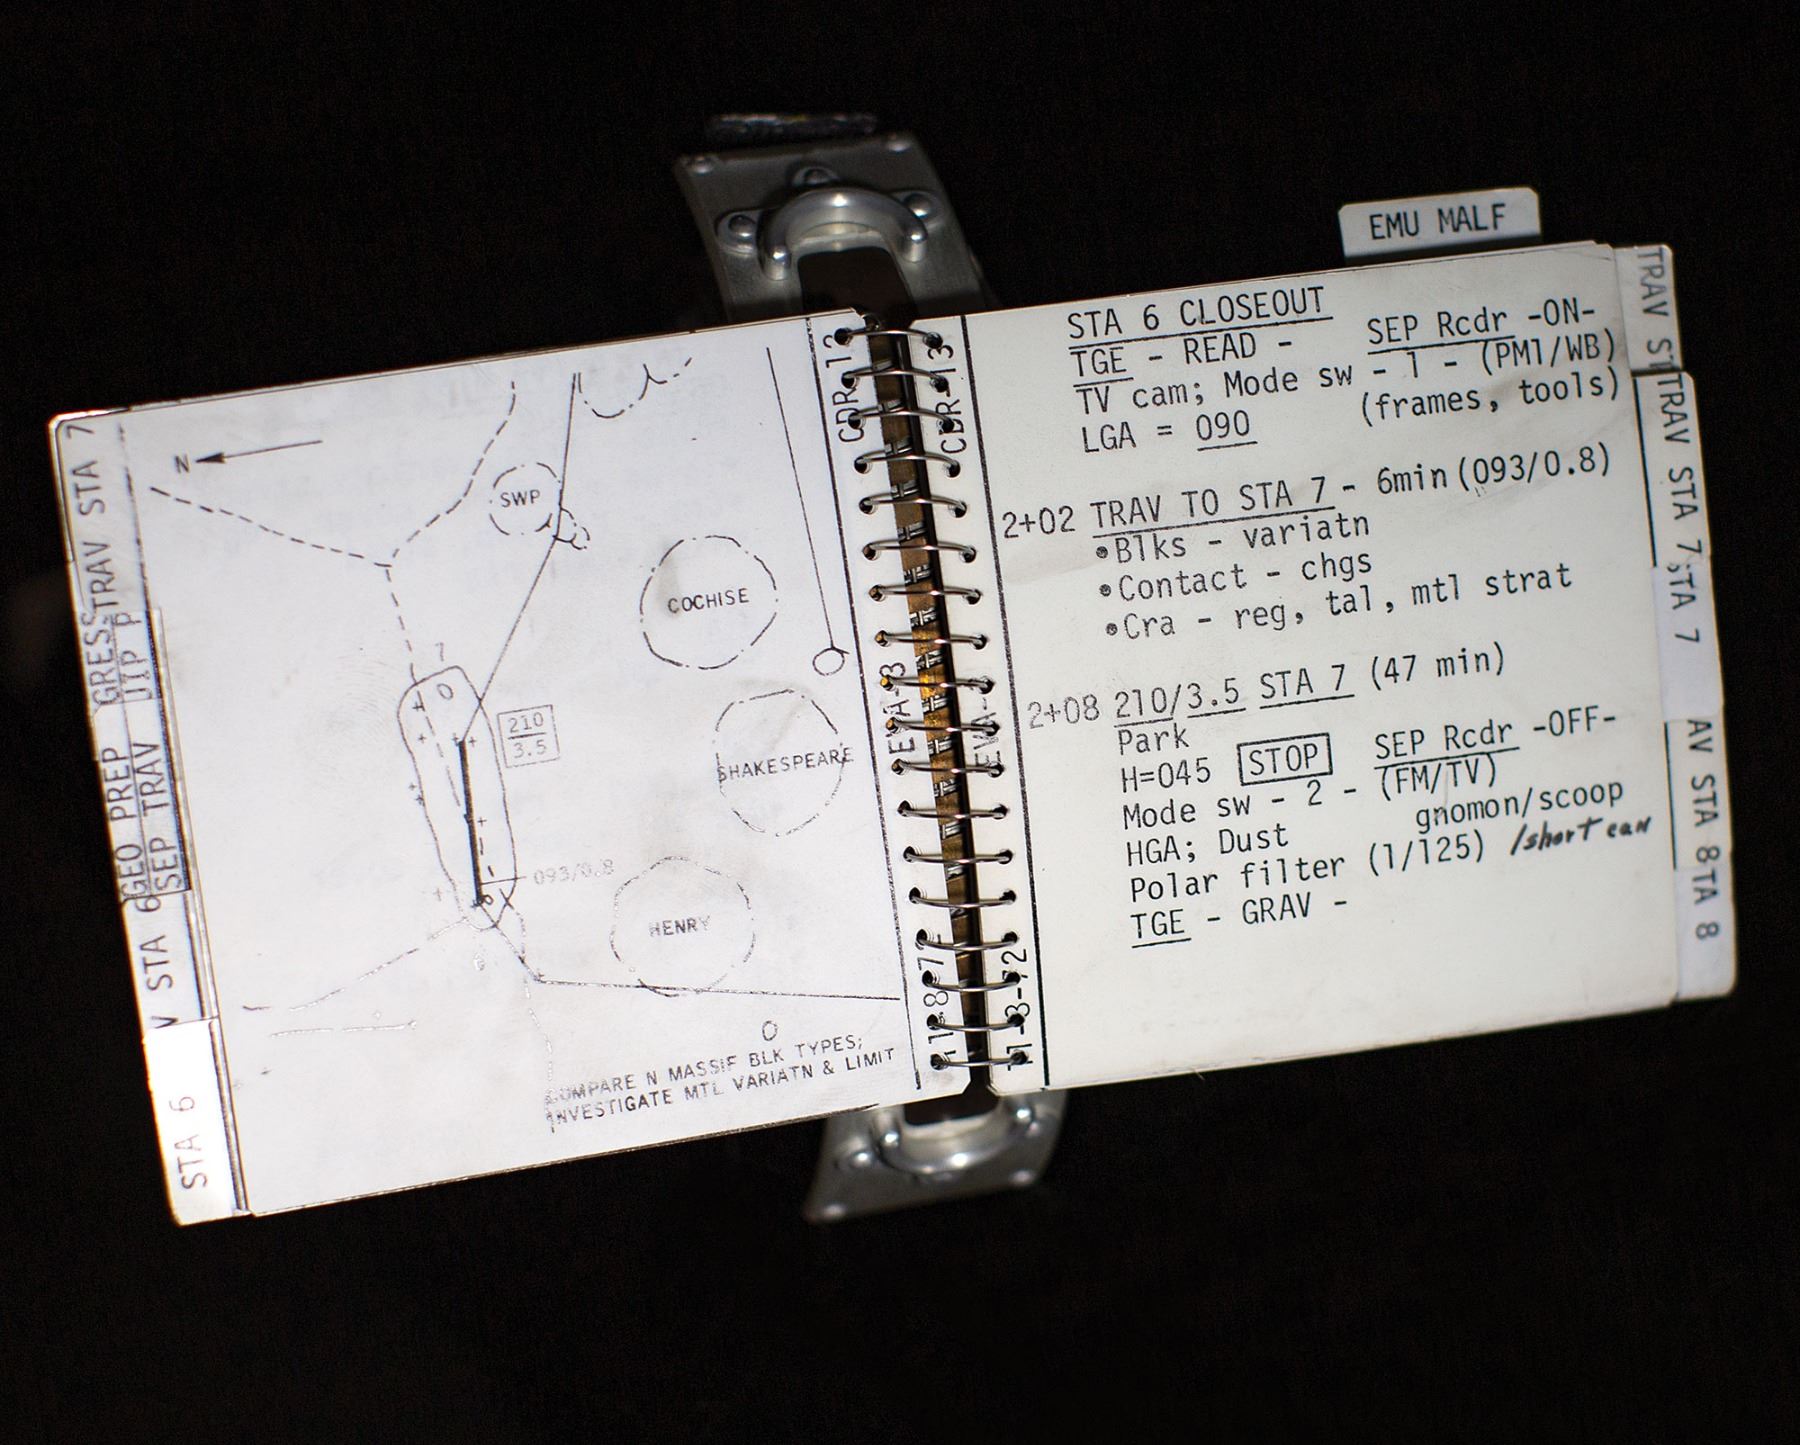 TRAV STA 7
GEO PREP
SEP TRAV
STA 6
N
SWP
COCHISE
7
210
3.5
SHAKESPEARE
093/0.8
HENRY
6
COMPARE N MASSIF BLK TYPES;
INVESTIGATE MTL VARIATN & LIMIT
CDR-12
EVA-3
11-8-72
CDR-13
EVA-
11-8-72
EMU MALF
STA 6 CLOSEOUT
TGE - READ - SEP Rcdr -ON-
TV cam; Mode sw - 1 - (PM1/WB)
LGA = 090 (frames, tools)
2+02 TRAV TO STA 7 - 6min (093/0.8)
•Blks - variatn
•Contact - chgs
•Cra - reg, tal, mtl strat
2+08 210/3.5 STA 7 (47 min)
Park
H=045 STOP SEP Rcdr -OFF-
Mode sw - 2 - (FM/TV)
HGA; Dust gnomon/scoop
Polar filter (1/125) /short can
TGE - GRAV -
TRAV ST
TRAV STA 7
STA 7
AV STA 8
TA 8